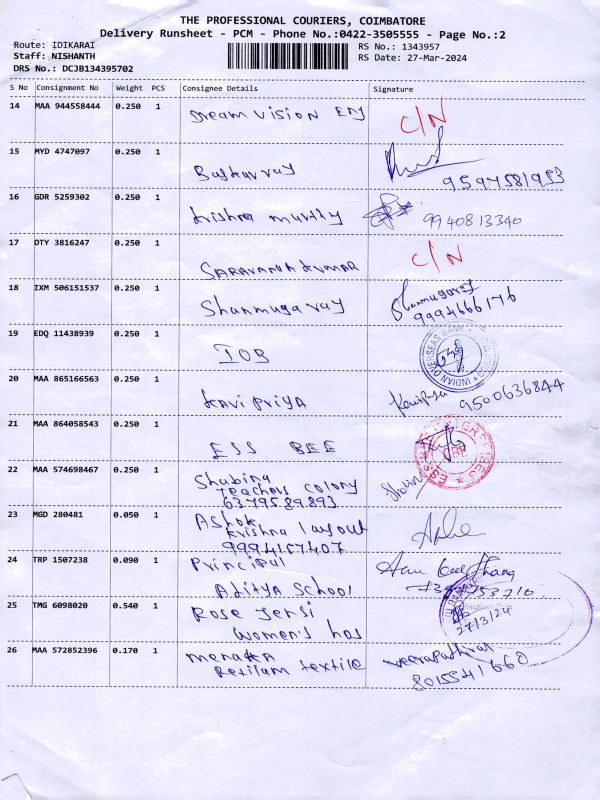 THE PROFESSIONAL COURIERS, COIMBATORE
Delivery Runsheet - PCM - Phone No.:0422-3505555 - Page No.:2
Route: IDIKARAI
Staff: NISHANTH
DRS No.: DCJB134395702
RS No.: 1343957
RS Date: 27-Mar-2024
S No Consignment No Weight PCS Consignee Details Signature
14 MAA 944558444 0.250 1 Dream Vision C/N
15 MYD 4747097 0.250 1 Baskarray 9597581953
16 GDR 5259302 0.250 1 Krishna murthy 9940813340
17 OTY 3816247 0.250 1 SARAVANA KUMAR C/N
18 IXM 506151537 0.250 1 Shanmugaray Shanmugaray
9994666176
19 EDQ 11438939 0.250 1 IOB INDIAN OVERSEAS BANK
20 MAA 865166563 0.250 1 KAVI PRIYA 9500636844
21 MAA 864058543 0.250 1 ESS BEE
22 MAA 574698467 0.250 1 Shabina
Teachers colony
6379589893
23 MGD 280481 0.050 1 Ashok
Krishna layout
9994157407
24 TRP 1507238 0.090 1 Principal
Aditya School
25 TMG 6098020 0.540 1 Rose Jensi
Women's hos
27/3/24
26 MAA 572852396 0.170 1 menaka
textile
8015541660